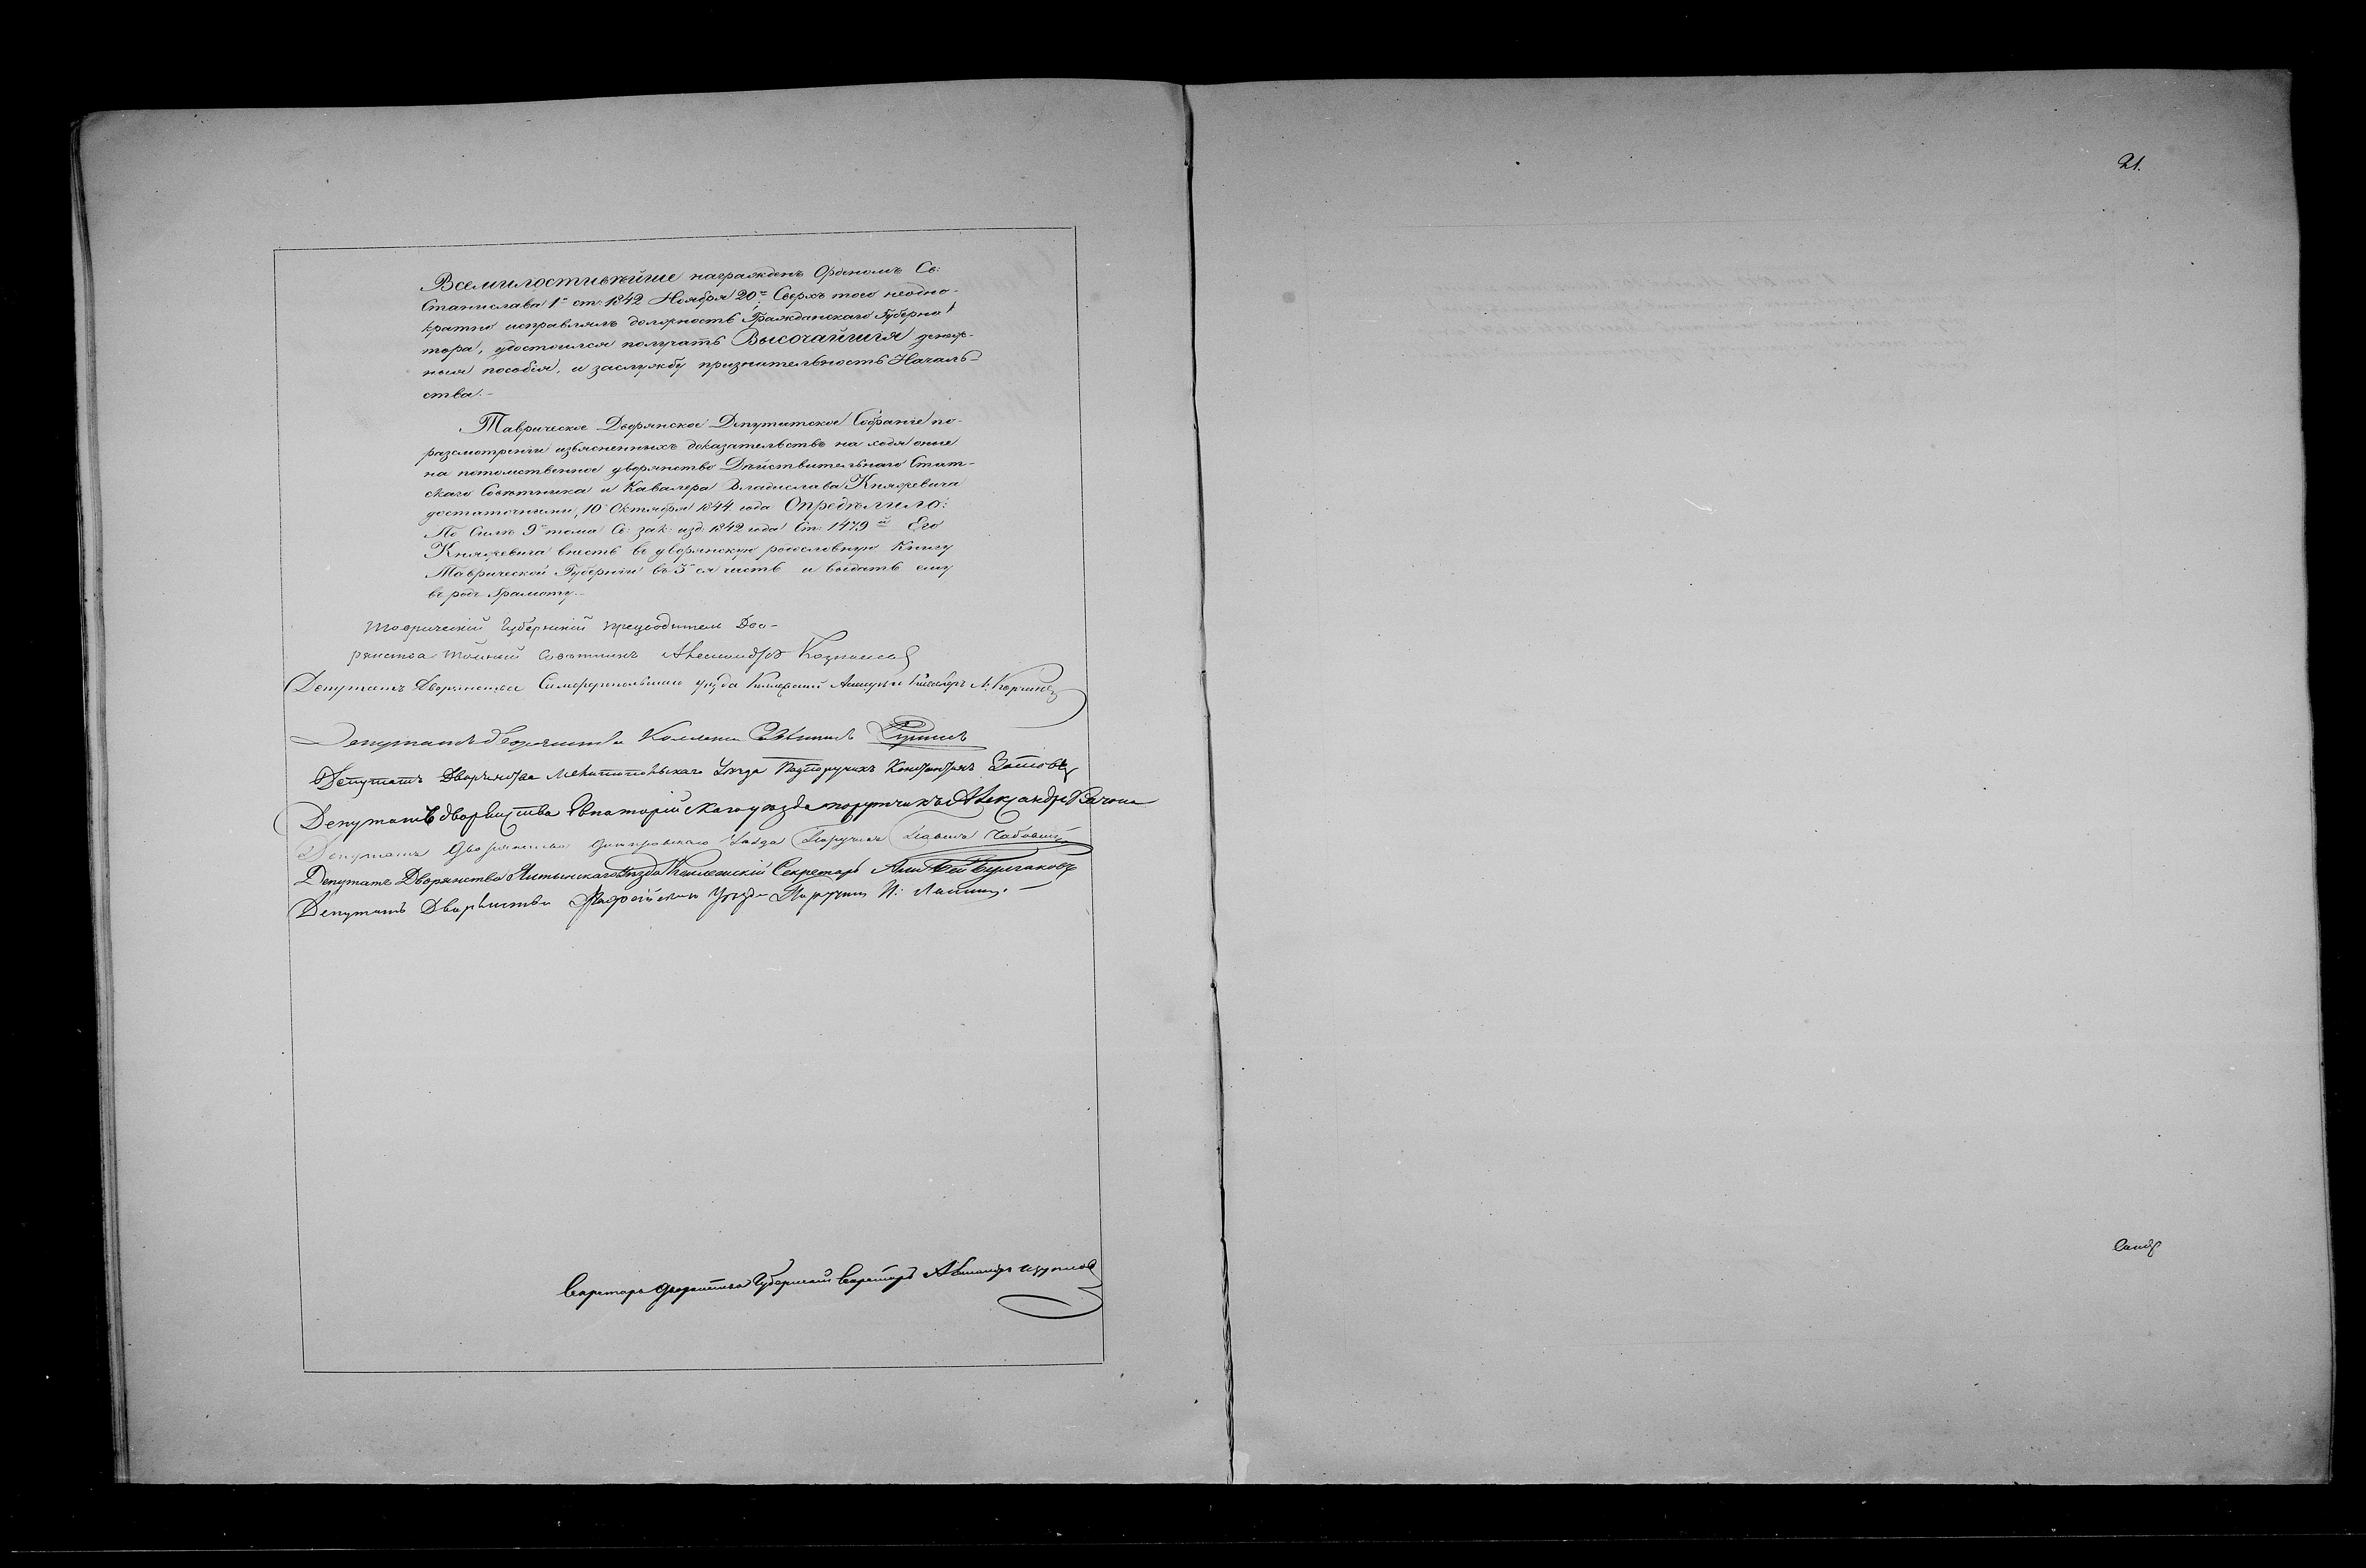 Всемилостивѣйше награжденъ Орденомъ Св:
Станислава 1й ст: 1842 Ноября 20го Сверхъ того неодно-
кратно исправлялъ должность Гражданскаго Губерна
тора, удостоился получать Высочайшія денеж-
ныя пособія, и заслужбу признательность Началь-
ства.-
Таврическое Дворянское Депутатское Собраніе по-
разсмотреніи изъясненныхъ доказательствъ на ходя оные
на потомственное дворянство Дѣйствительнаго Стат-
скаго Совѣтника и Кавалера Владислава Княжевича
достаточными, 10 Октября 1844 года Опредѣлило:
По Силѣ 9го тома Св: зак: изд: 1842 года Ст: 1479й Его
Княжевича внесть въ дворянскую родословную Книгу
Таврической Губерніи въ 3ю ея часть и выдать ему
въ родъ Грамоту.-
Таврическій Губернскій предводитель Дво-
рянства Тайный Совѣтникъ Александръ Казначеевъ
Депутатъ Дворянства Симферопольскаго уѣзда
Депутатъ дворянства
Депутатъ Дворянства Мелитопольскаго Уѣзда Подпоручикъ Константинъ
Депутатъ дворянства Евпаторійскаго уѣзда порутчикъ Александръ
Депутатъ Дворянства Днѣпровскаго Уѣзда Поручикъ Павелъ
Депутатъ Дворянства Ялтинскаго Уѣзда Коллежскій Секретарь Али Бей Булгаковъ
Депутатъ Дворянства Уѣзда Поручикъ
Секретарь Дворянства Губернскій Секретарь Александръ
21.